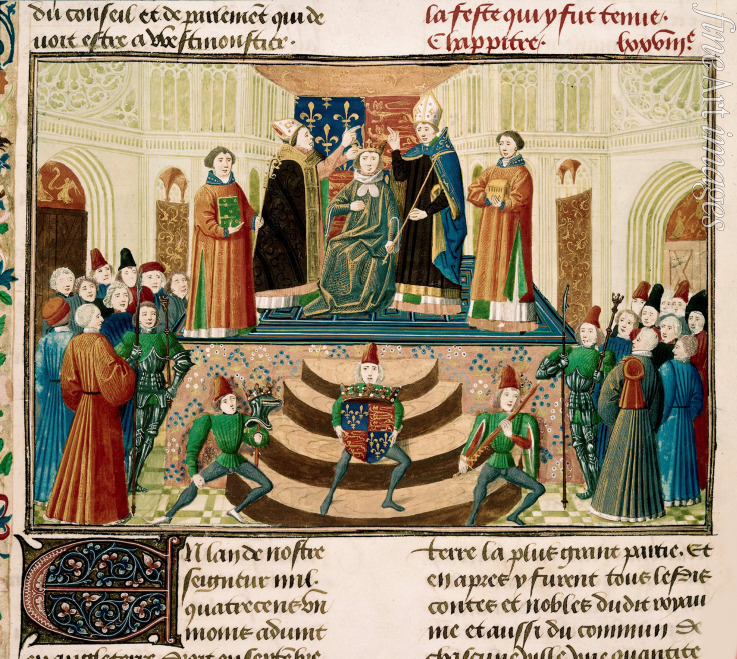 du conseil et de parlement qui de
uoit estre a Westmonstier.
la feste qui y fut tenue.
Chappitre. lxxviiiᵉ
En lan de nostre
seigneur mil.
quatrecens vn
moins aduint
en angleterre
terre la plus grant partie. Et
en apres y furent tous les
contes et nobles dudit royau
me et aussi du commun
chascune ville une quantite
fine art images